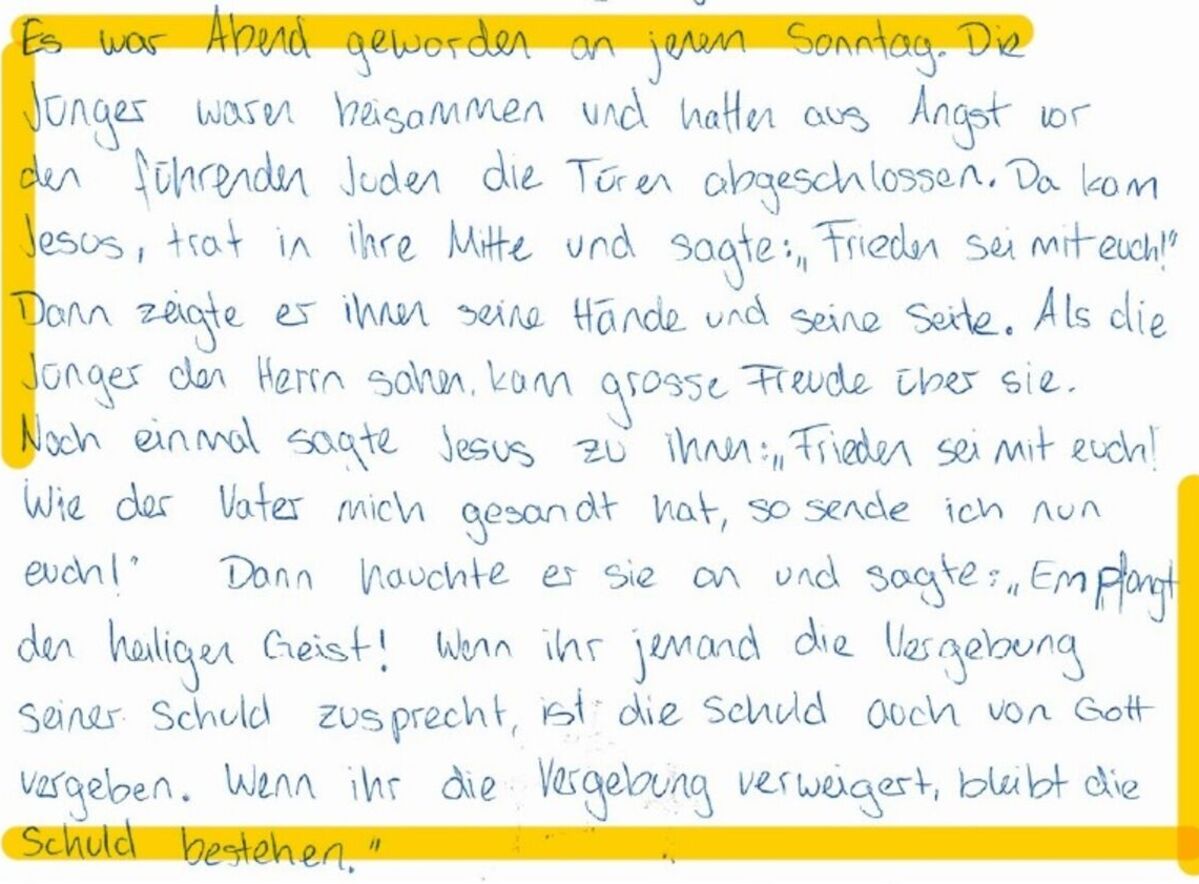 Es war Abend geworden an jenem Sonntag. Die
Jünger waren beisammen und hatten aus Angst vor
den führenden Juden die Türen abgeschlossen. Da kam
Jesus, trat in ihre Mitte und sagte: „Frieden sei mit euch!"
Dann zeigte er ihnen seine Hände und seine Seite. Als die
Jünger den Herrn sahen, kam grosse Freude über sie.
Noch einmal sagte Jesus zu ihnen: „Frieden sei mit euch!
Wie der Vater mich gesandt hat, so sende ich nun
euch!" Dann hauchte er sie an und sagte: „Empfangt
den heiligen Geist! Wenn ihr jemand die Vergebung
seiner Schuld zusprecht, ist die Schuld auch von Gott
vergeben. Wenn ihr die Vergebung verweigert, bleibt die
Schuld bestehen."